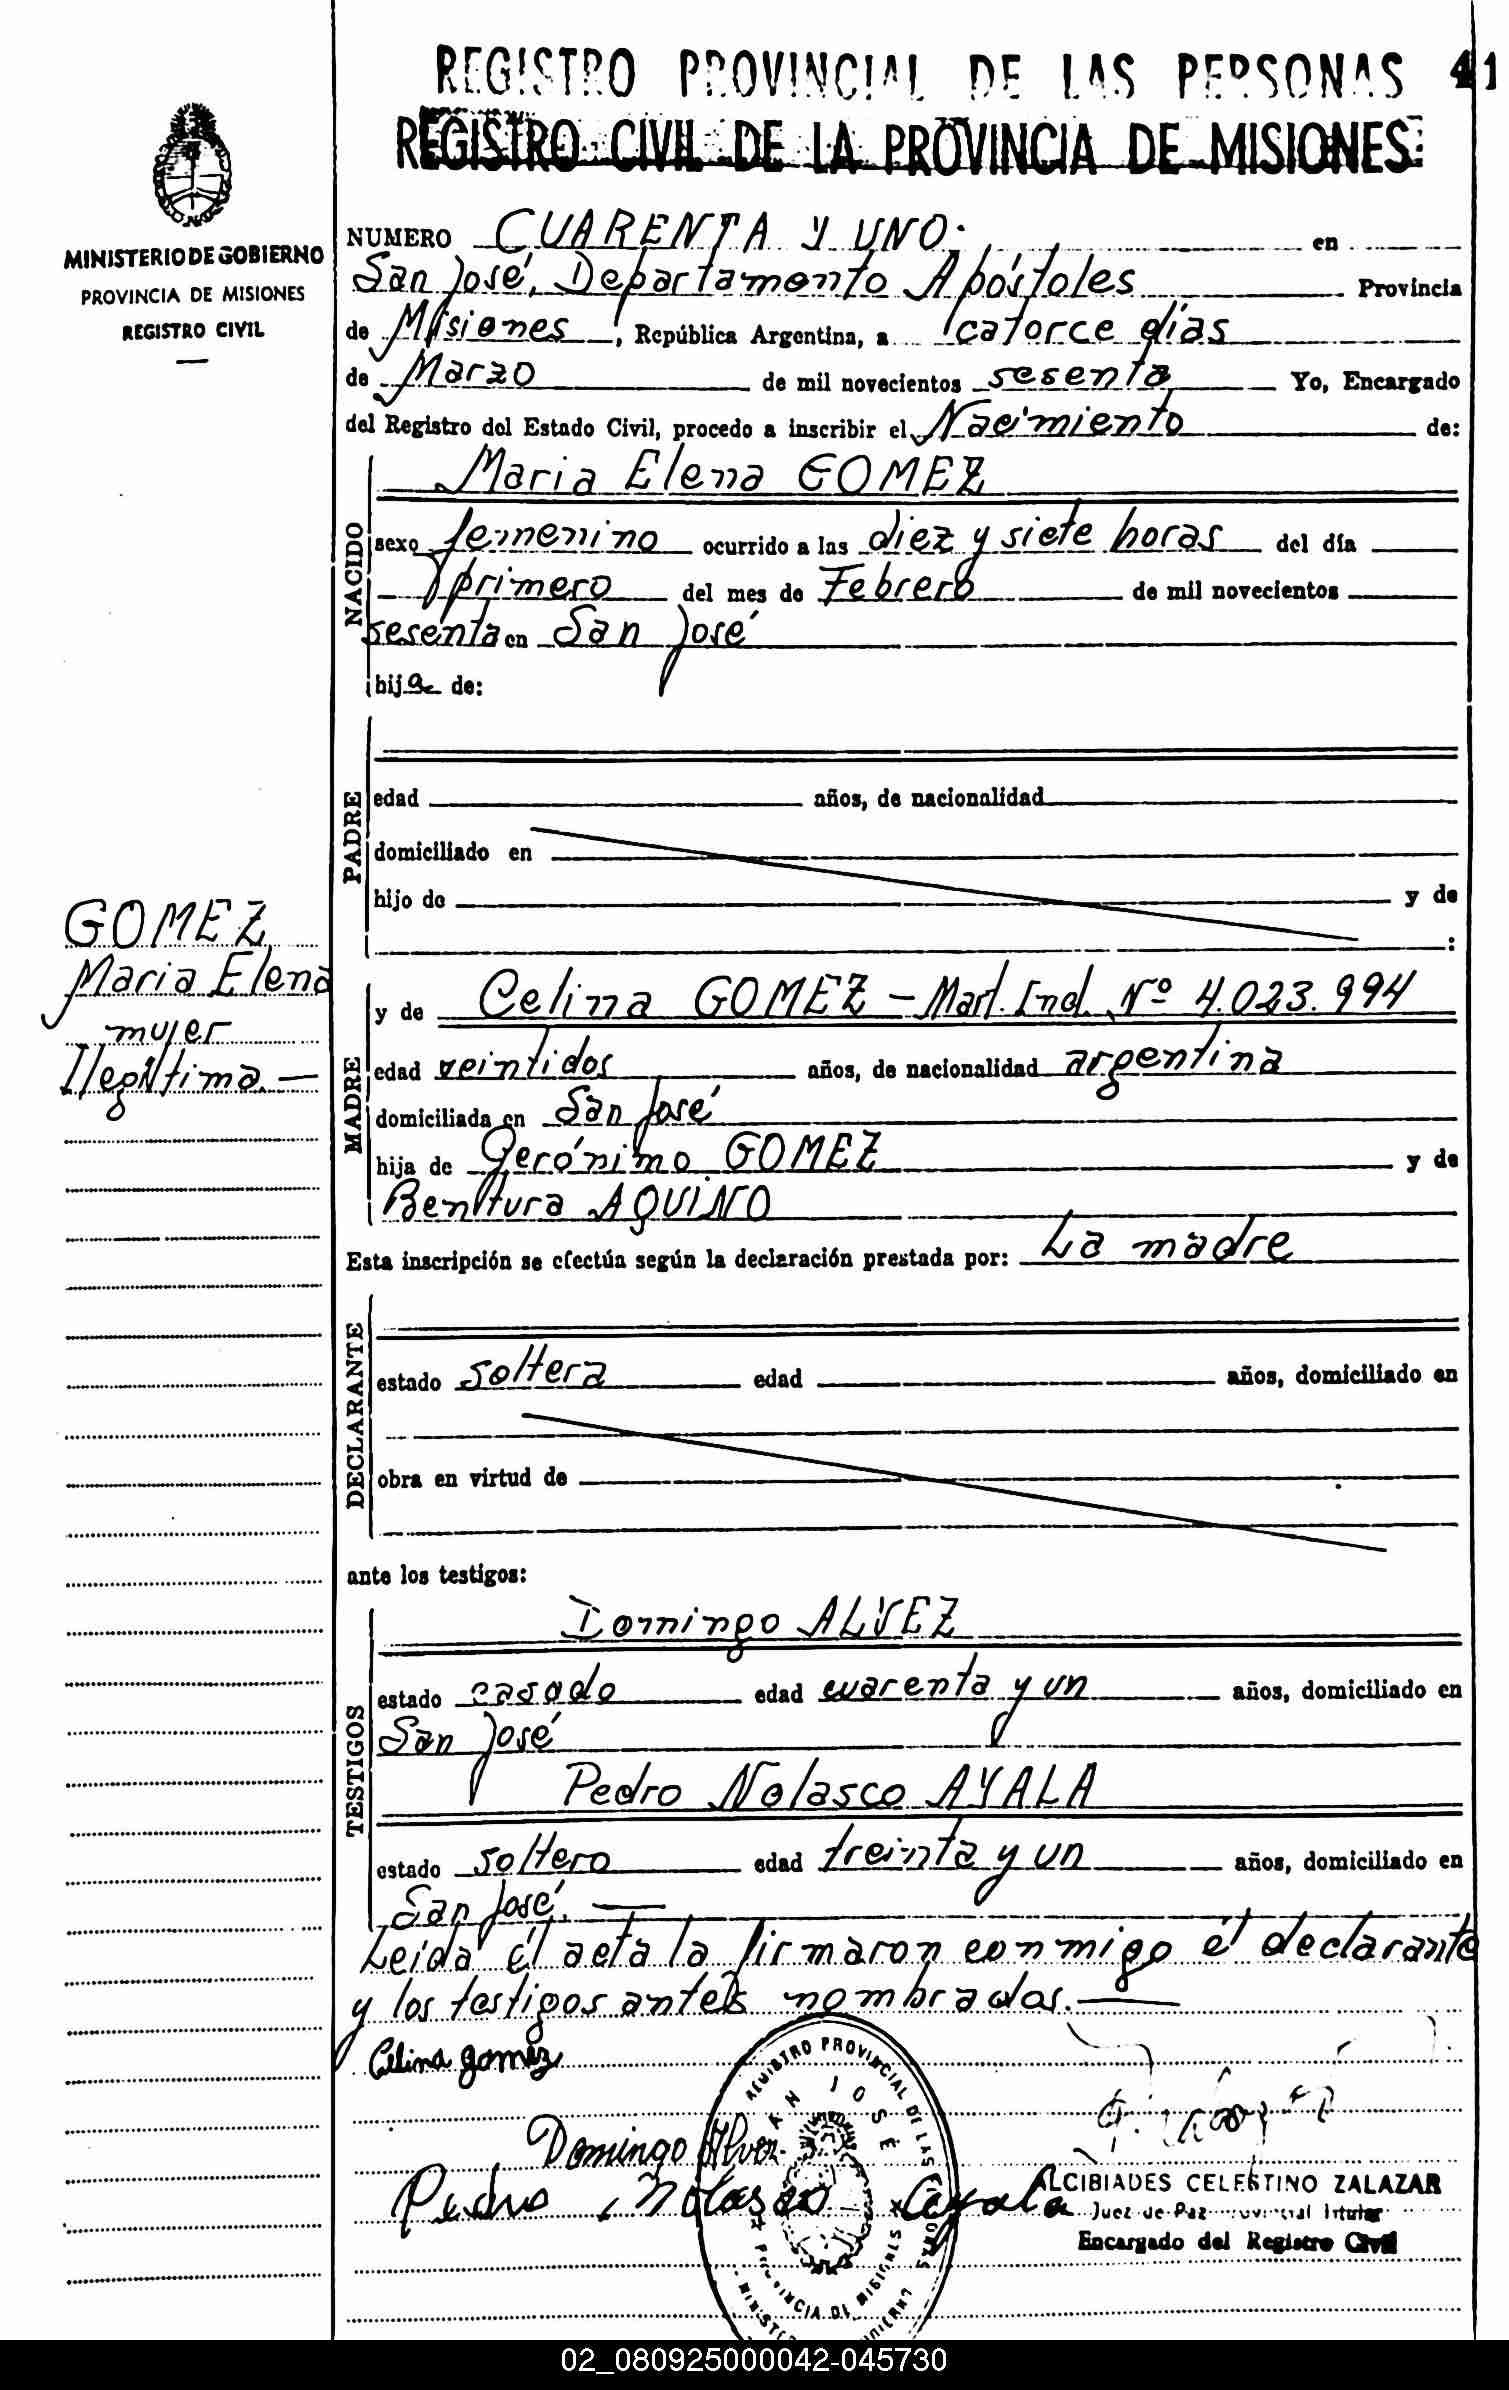 REGISTRO PROVINCIAL DE LAS PERSONAS 41
REGISTRO CIVIL DE LA PROVINCIA DE MISIONES
MINISTERIO DE GOBIERNO
PROVINCIA DE MISIONES
REGISTRO CIVIL
NUMERO CUARENTA Y UNO. en
San José, Departamento Apóstoles Provincia
de Misiones, República Argentina, a catorce días
de Marzo de mil novecientos sesenta Yo, Encargado
del Registro del Estado Civil, procedo a inscribir el Nacimiento de:
NACIDO
Maria Elena GOMEZ
sexo femenino ocurrido a las diez y siete horas del día
primero del mes de Febrero de mil novecientos
sesenta en San José
hija de:
PADRE
edad años, de nacionalidad
domiciliado en
hijo de y de
:
GOMEZ
Maria Elena
mujer
Ilegítima.—
MADRE
y de Celina GOMEZ – Mat. Ind. Nº 4.023.994
edad veintidos años, de nacionalidad argentina
domiciliada en San José
hija de Gerónimo GOMEZ y de
Benitura AQUINO
Esta inscripción se efectúa según la declaración prestada por: La madre
DECLARANTE
estado soltera edad años, domiciliado en
obra en virtud de
ante los testigos:
TESTIGOS
Domingo ALVEZ
estado casado edad cuarenta y un años, domiciliado en
San José
Pedro Nolasco AYALA
estado soltero edad treinta y un años, domiciliado en
San José. —
Leída el acta la firmaron conmigo el declarante
y los testigos antes nombrados. —
Celina gomez
Domingo Alvez
Pedro Nolasco Ayala
REGISTRO PROVINCIAL DE LAS PERSONAS
SAN JOSÉ
PROVINCIA DE MISIONES
ALCIBIADES CELESTINO ZALAZAR
Juez de Paz titular
Encargado del Registro Civil
02_080925000042-045730